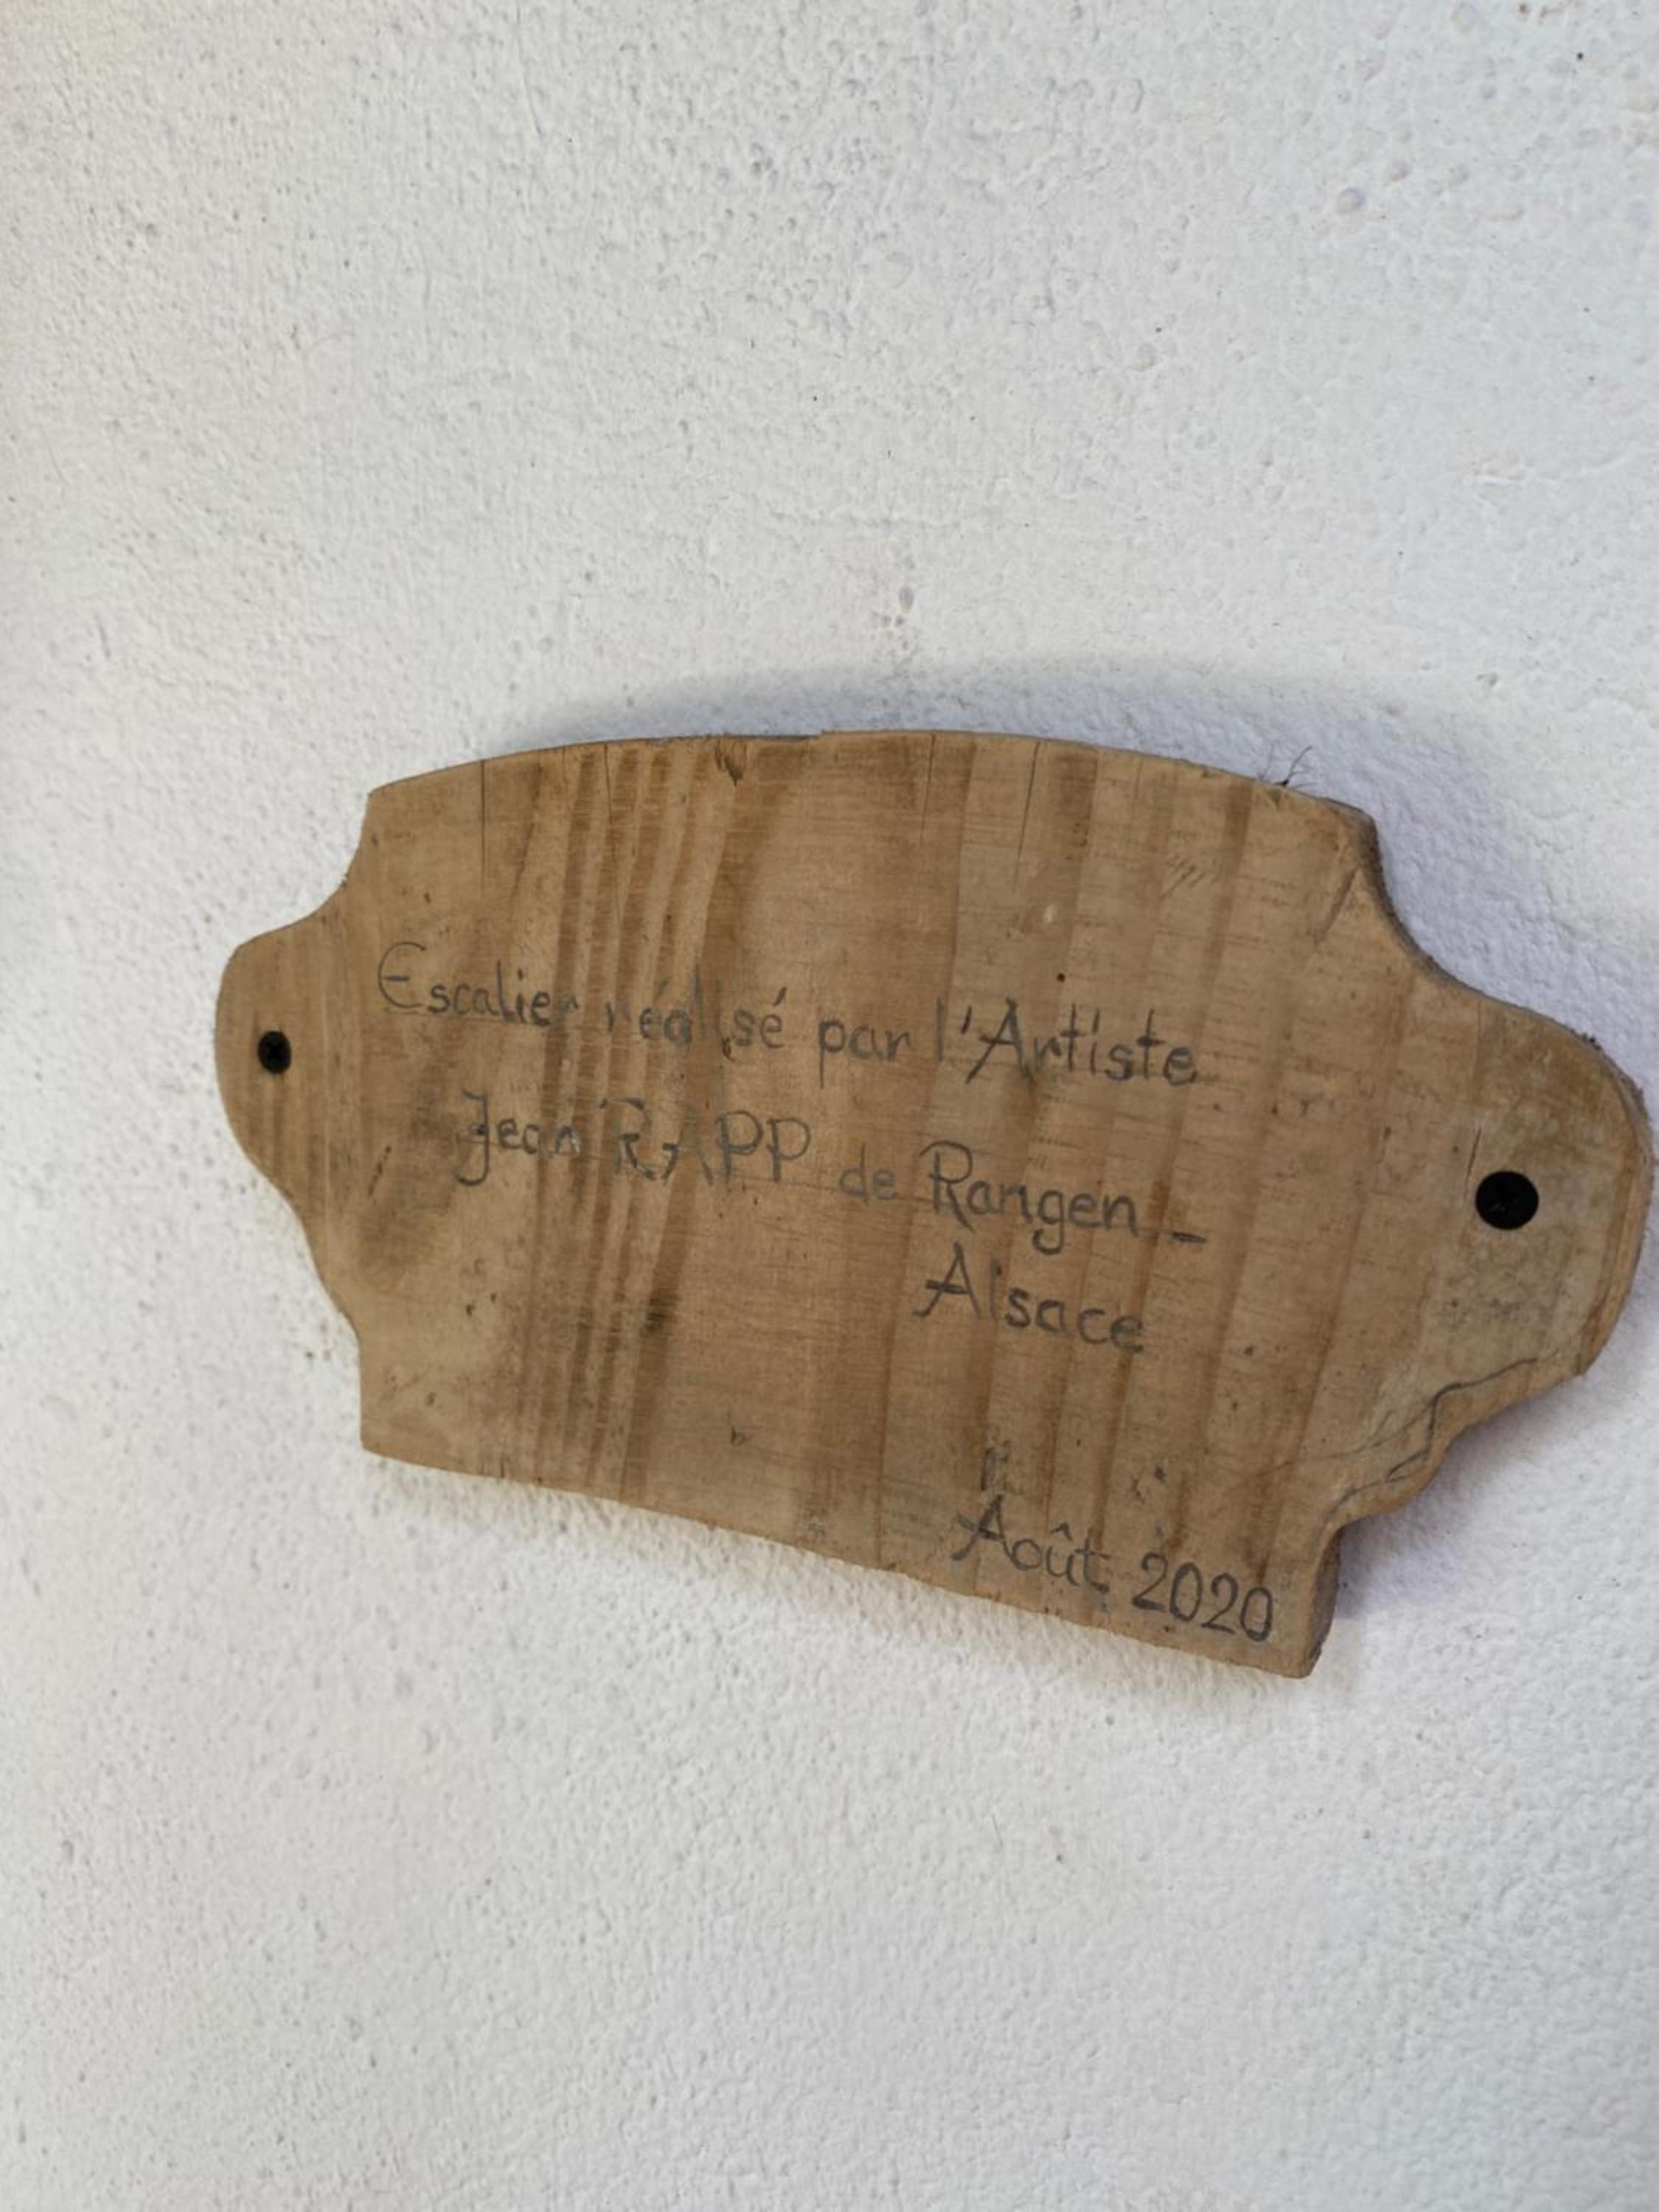 Escalier réalisé par l'Artiste
Jean RAPP de Rangen -
Alsace
Août 2020